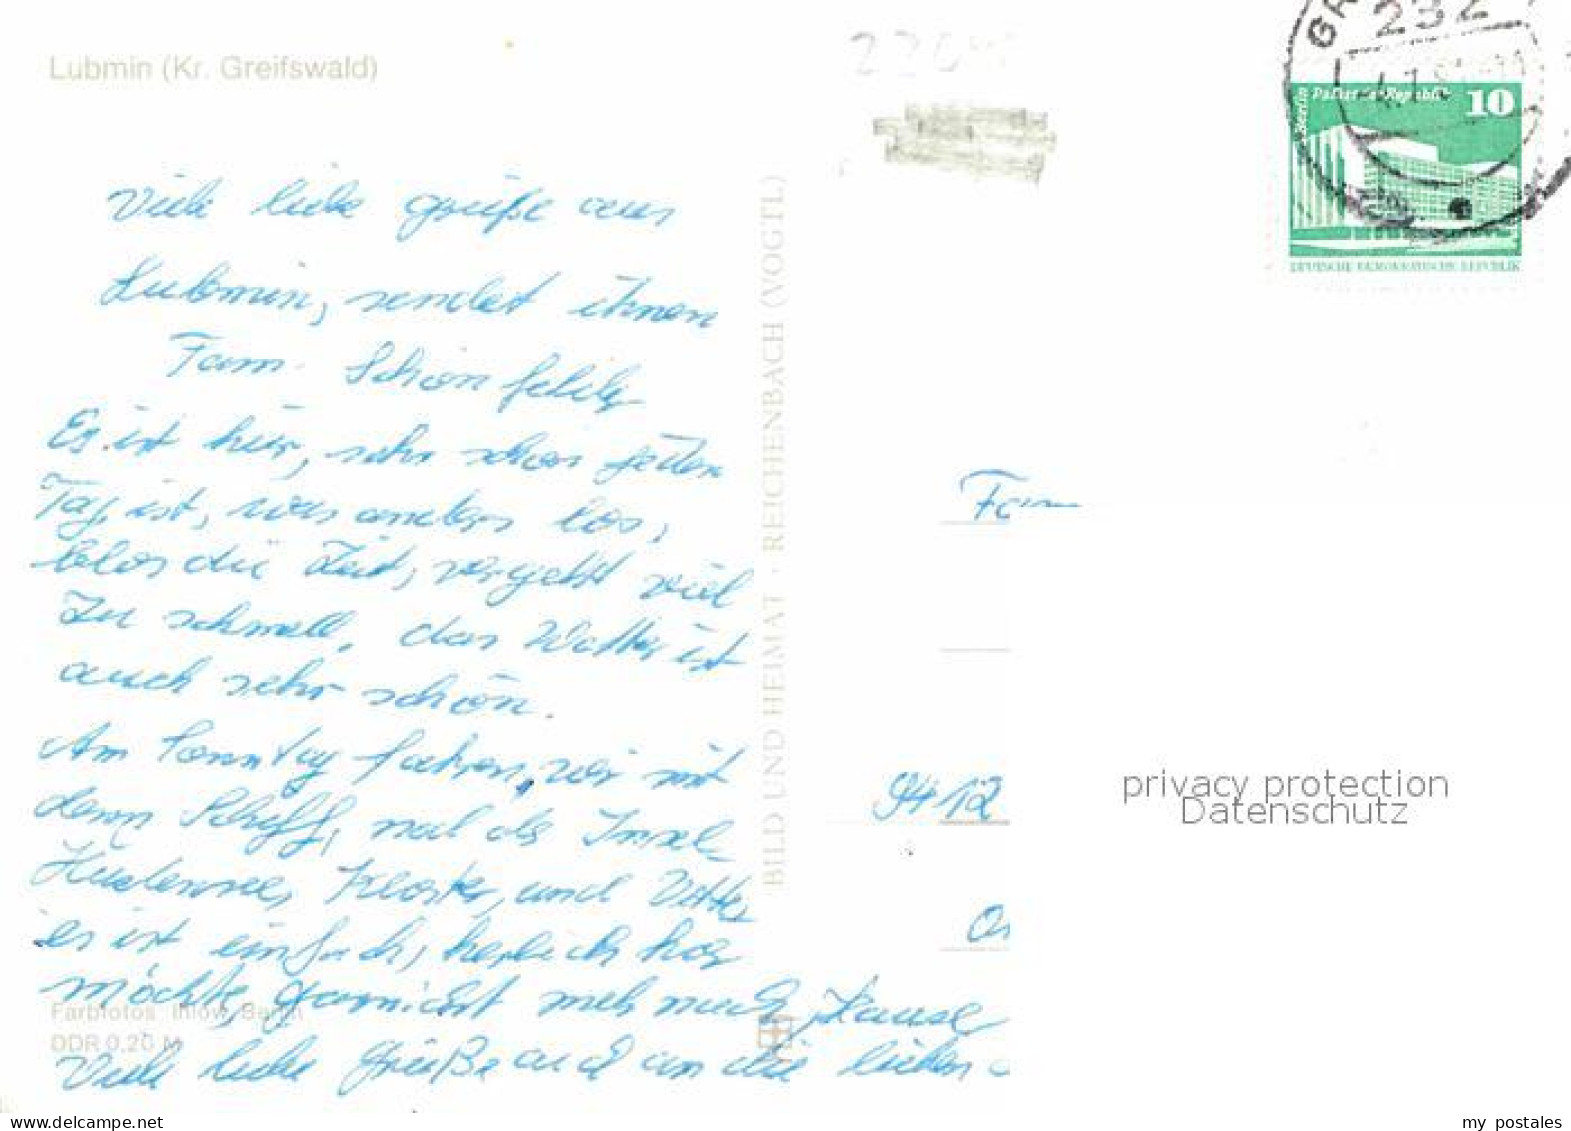 Lubmin (Kr. Greifswald)
Viele liebe Grüße aus
Lubmin, sendet ihnen
Fam. Schönfelder
Es ist hier, sehr schon jeden
Tag, ist, was anders los,
blos die Zeit, vergeht viel
Zu schnell, das Wetter ist
auch sehr schön.
Am Sonntag fahren, wir mit
dem Schiff, nach der Insel
Hiddensee, Kloster, und Vitte,
es ist einfach, herlich
möchte, garnicht mehr nach, Hause
Viele liebe Grüße auch an die lieben
Farbfotos: Ihlow, Berlin
DDR 0,20 M
BILD UND HEIMAT · REICHENBACH (VOGTL)
232
Berlin Palast der Republik 10
DEUTSCHE DEMOKRATISCHE REPUBLIK
Fam
9412
privacy protection
Datenschutz
my_postales